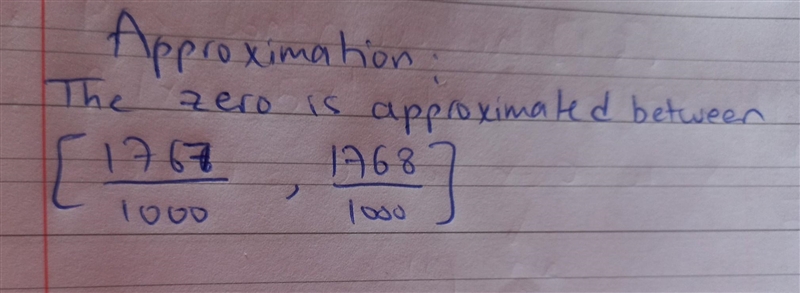 Approximation:
The zero is approximated between
[1767/1000, 1768/1000]